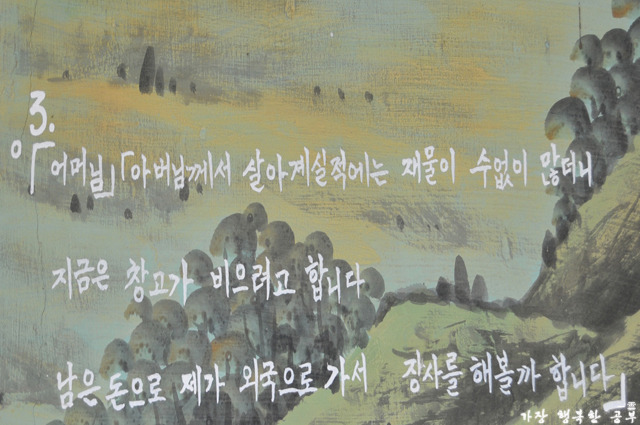 3.
어머님」「아버님께서 살아계실적에는 재물이 수없이 많더니
지금은 창고가 비으려고 합니다
남은돈으로 제가 외국으로가서 장사를해볼까 합니다」
가장 행복한 공부